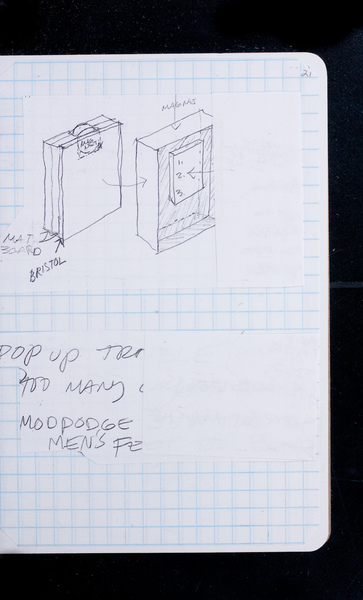 21
MAGMS
1.
2.
3.
MAT
BOARD
BRISTOL
POP UP TR
TOO MANY
MODPODGE
MEN'S FE